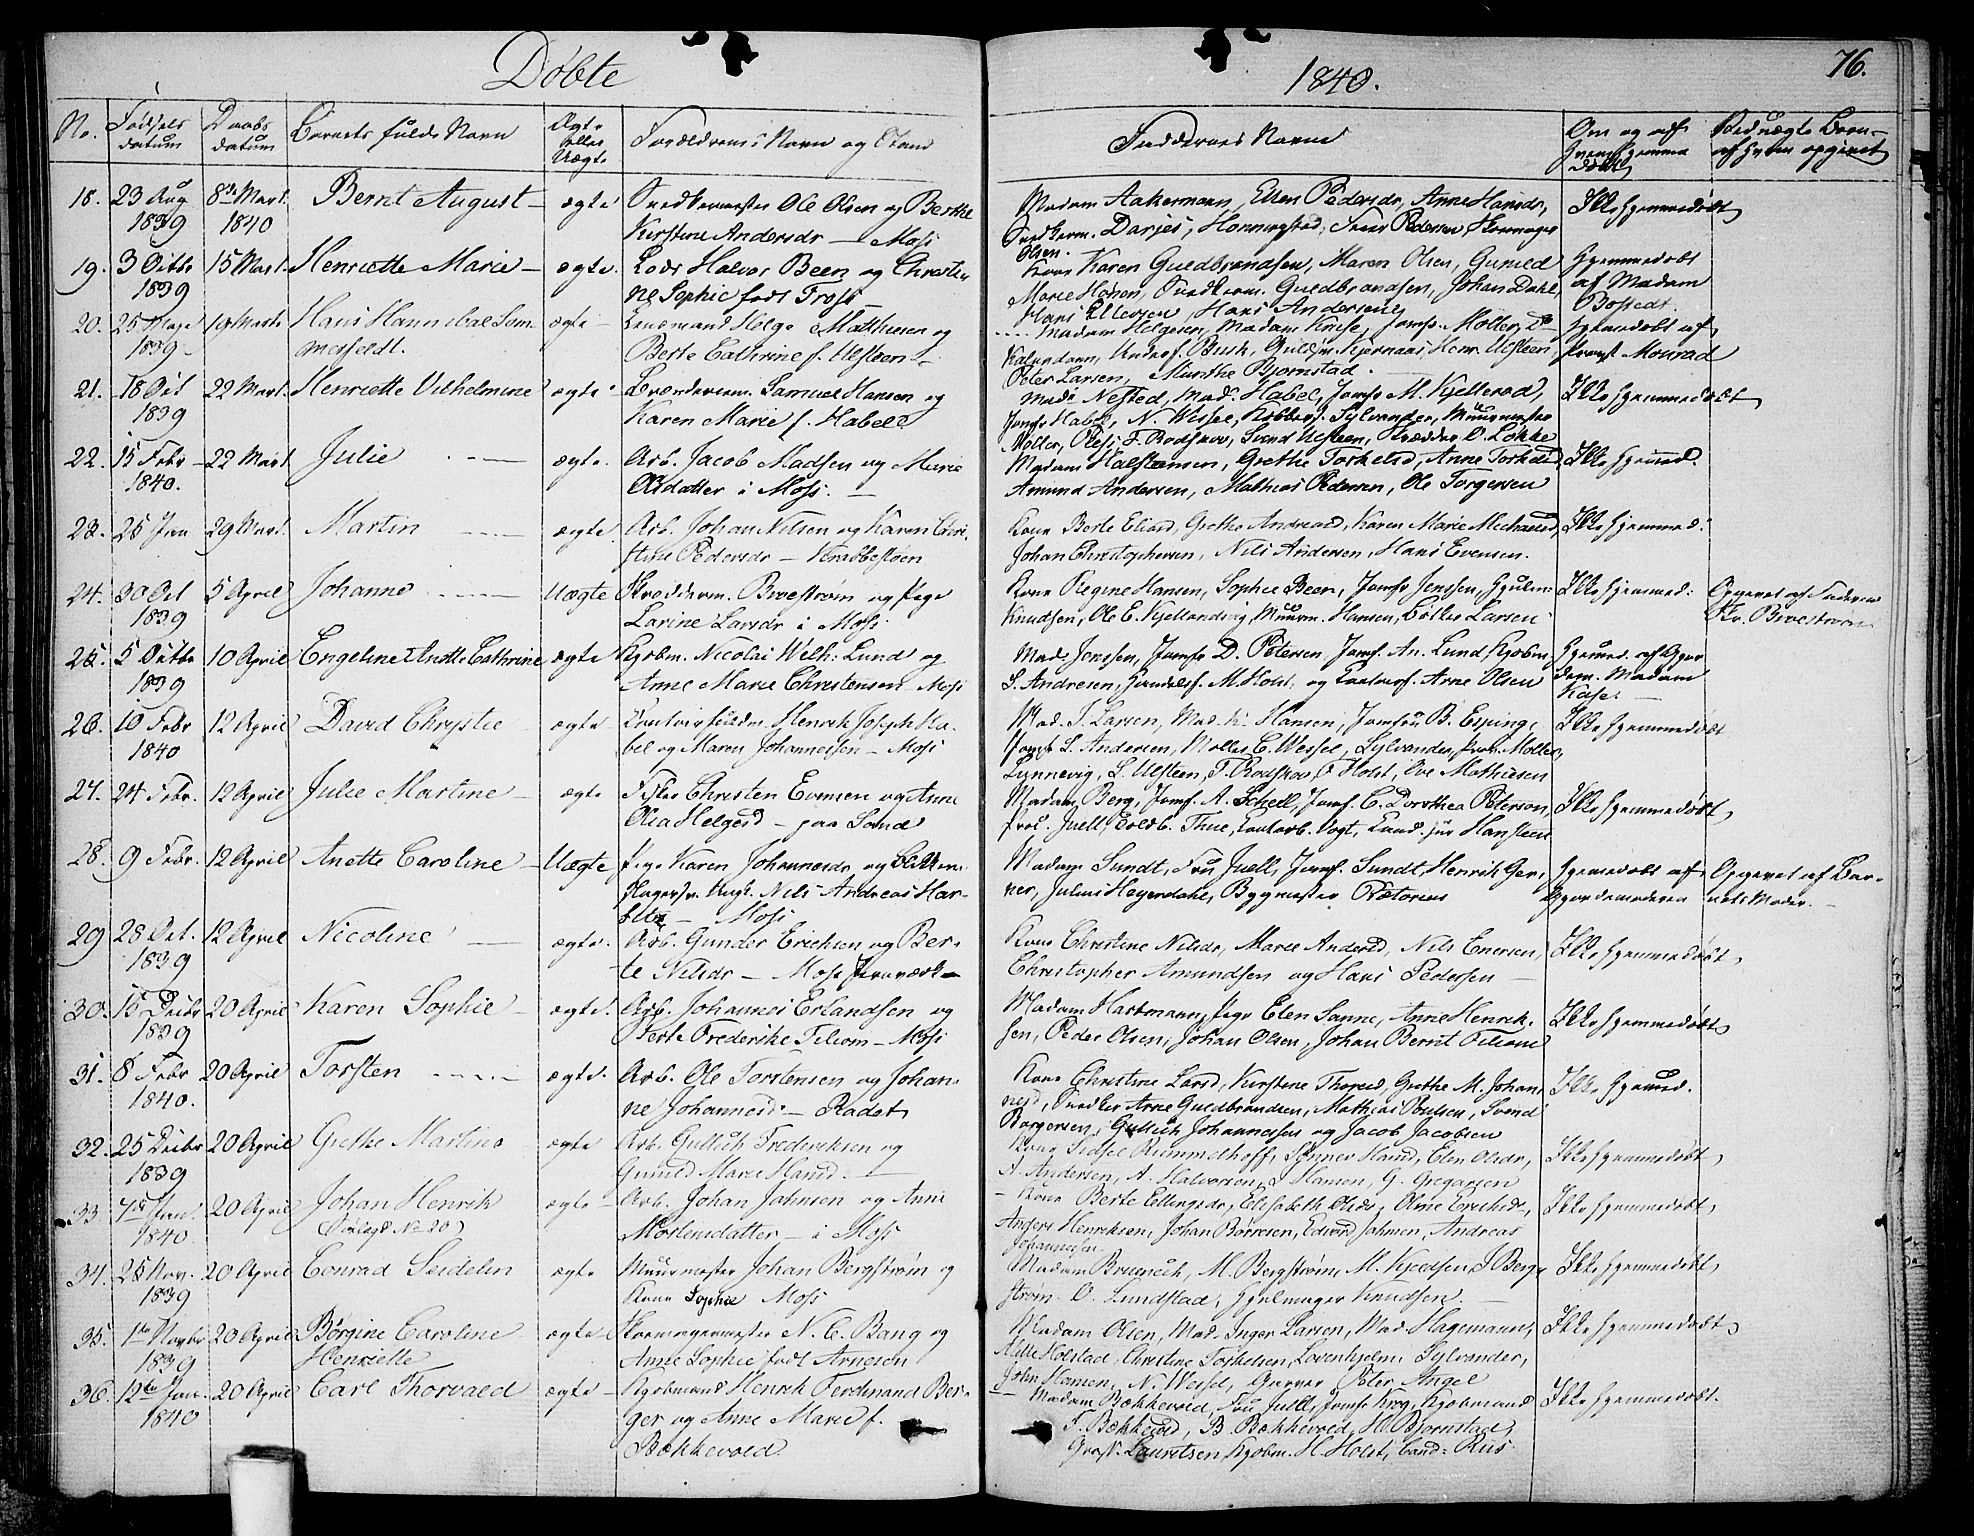 Døbte
1840.
76.
No. Fødsels datum Daabs datum Barnets fulde Navn Ægte eller Uægte Forældrenes Navn og Stand Faddernes Navne Om og af hvem hjemme døbt
18. 23 Aug 1839 8de Mart. 1840 Bernt August ægte Snedkermester Ole Olsen og Berthe
Kirstine Andersdr — Moss
Madam Aakermann, Ellen Pedersdr, Anne Hansdr,
Snedkerm. Darjes, Honningstad, Skomager
Olsen.
Ikke hjemmedøbt
19. 3 Octbr 1839 15 Mart. Henriette Marie ægte. Lods Halvor Been og Christi-
ne Sophie født Tross
Kone Karen Guldbrandsen, Maren Olsen, Gunild
Marie Hansen, Snedkerm. Guldbrandsen, Johan Dahl,
Hans Ellevsen, Hans Andersen
Hjemmedøbt
af Madam
Bossedt.
20. 25 1839 19 Marts Hans Hannibal Som-
merfeldt.
ægte Lensmand Helge Mathiesen og
Berte Cathrine f. Ulsteen
Madam Helgesen, Madam Kruse, Jomf. Møller, D
Peter Larsen, Munthe Bjørnstad.
Hjemmedøbt af
Provst Mourad
21. 18 Oct 1839 22 Mart. Henriette Vilhelmine ægte Samuel Hansen og
Karen Marie f. Habel
Mad. Nested, Mad. Habel, Jomfr M. Kjellerød,
Jomfr Habel, N. Wessel, Sylvander, Muurmester
Møller, F. Rodskov, Svend Ulsteen, Skrædder O. Løkke
Ikke hjemmedøbt
22. 15 Febr 1840. 22 Mart Julie ægte. Arb. Jacob Madsen og Marie
Olsdatter i Moss.
Madam Halstensen, Grethe Torkelsd, Anne Torkelsd,
Amund Andersen, Mathias Pedersen, Ole Torgersen
Ikke hjemmed.
23. 25 Jan 29 Mart. Martin ægte. Arb. Johan Nilsen og Karen Chri-
stine Pedersdr — Krabbestøen
Kone Berte Eliasd, Grethe Andreasd, Karen Marie Michaelsd,
Johan Christophersen, Nils Andersen, Hans Evensen.
Ikke hjemmed:
24. 30 Oct 1839 5 April Johanne Uægte Skrædderm. Broestrøm og Pige
Larine Larsdr i Moss.
Kone Regine Hansen, Sophie Been, Jomfr Jenssen, Hjulm:
Knudsen, Ole E. Kjellandvig, Muurm. Hansen, Bødker Larsen
Ikke hjemmed: Opgivet af Faderen
Skr. Broestrøm
25. 5 Octbr 1839 10 April Engeline Anette Cathrine ægte Kjøbm. Nicolai Wilh: Lund og
Anne Marie Christensen Moss
Mad. Jenssen, Jomfr D. Petersen, Jomf. An. Lund, Kjøbm.
S. Andresen, Handelsf. M. Holst, og Arne Olsen
Hjemmed. af Gjor-
dem. Madam
26. 10 Febr 1840 12 April David Chrystie ægte Henrik Joseph Ha-
bel og Maren Johannessen — Moss
Mad. T. Larsen, Mad. Hansen, Jomfru B. Esping,
Jomfr S. Andersen, Møller C. Wessel, Sylvander, Prov. Møller,
Lynnevig, S. Ulsteen, F. Rodskov, F. Holst, Ove Mathiesen
Ikke hjemmedøbt
27. 24 Febr. 12 April Julie Martine ægte Fisker Christen Evensen og Anne
Olia Helgesd — paa Sand
Madam Berg, Jomf. A. Schell, Jomf. C. Dorothea Peterson,
Prov. Juell, Toldb. Thue, Contorb. Vogt, Cand. jur Hansteen
Ikke hjemmedøbt
28. 9 Febr. 12 April Anette Caroline Uægte Pige Karen Johannesdr og Blikken-
slagersv. Ungk. Nils Andreas Har-
— Moss
Madam Sundt, Fru Juell, Jomf. Sundt, Henrik Ger-
ner, Julius Heyerdahl, Bygmester Prætorius
Hjemmedøbt af
Gjordemoderen
Opgivet af Bar-
nets Moder.
29 28 Oct. 1839 12 April Nicoline ægte. Arb. Gunder Erichsen og Ber-
te Nilsdr — Moss Jernværk
Kone Christine Nilsdr, Marie Andersd, Nils Enersen,
Christopher Amundsen og Hans Pedersen
Ikke hjemmedøbt
30. 15 Decbr 1839 20 April Karen Sophie ægte. Arb. Johannes Erlandsen og
Berte Frederikke Tiliom — Moss
Madam Hartmann, Pige Elen Sanne, Anne Henrik-
sen, Peder Olsen, Johan Olsen, Johan Bernt Tiliom
Ikke hjemmedøbt
31. 8 Febr 1840. 20 April Torsten ægte. Arb. Ole Torstensen og Johan-
ne Johannesd — Rødet
Kone Christine Larsd, Kirstine Thoresd, Grethe M. Johan-
nesd, Snedker Arne Guldbrandsen, Mathias Poulsen, Svend
Borgersen, Gullich Johannessen og Jacob Jacobsen
Ikke hjemmed.
32. 25 Decbr 1839 20 April Grethe Martine ægte Arb. Gullich Frederiksen og
Gunild Marie Hansd.
Kone Sidsel Rummelhoff, Synnev Hansd, Elen Olsdr,
A. Andersen, A. Halvorsen, Hansen, G. Gregarsen
Ikke hjemmedøbt
33. 7de Jan. 1840 20 April Johan Henrik
ægte Arb. Johan Jahnsen og Anne
Mortensdatter — i Moss
Kone Berte Ellingsdr, Elisabeth Olsdr, Olme Erichsdr,
Anders Henriksen, Johan Børresen, Edvard Jahnsen, Andreas
Johannessen
Ikke hjemmedøbt
34. 25 Nov. 1839 20 April Conrad Seidelin ægte Muurmester Johan Bergstrøm og
Kone Sophie Moss
Madam Bruenech, M. Bergstrøm, M. Kjeldsen, J Berg-
strøm O. Lundstad, Hjulmager Knudsen
Ikke hjemmedøbt
35. 1ste Novbr 1839 20 April Børgine Caroline
Henriette
ægte Skomagermester N. C. Bang og
Anne Sophie født Arnesen
Madam Olsen, Mad. Inger Larsen, Mad. Hagemann,
Mette Holstad, Christine Torkelsen, Lovenhjelm, Sylvander,
John Hansen, N. Wessel, Garver Peter Angel
Ikke hjemmedøbt
36. 12te Jan. 1840 20 April Carl Thorvald ægte Kjøbmand Henrik Ferdinand Ber-
ger og Anne Marie f.
Bækkevold.
Madam Bækkevold, Fru Juell, Jomfr Krog, Kjøbmand
F. Bækkevold, B. Bækkevold, H. Bjørnstad,
Lauretsen, Kjøbm. H. Holst, Cand: Riis.
Ikke hjemmedøbt.